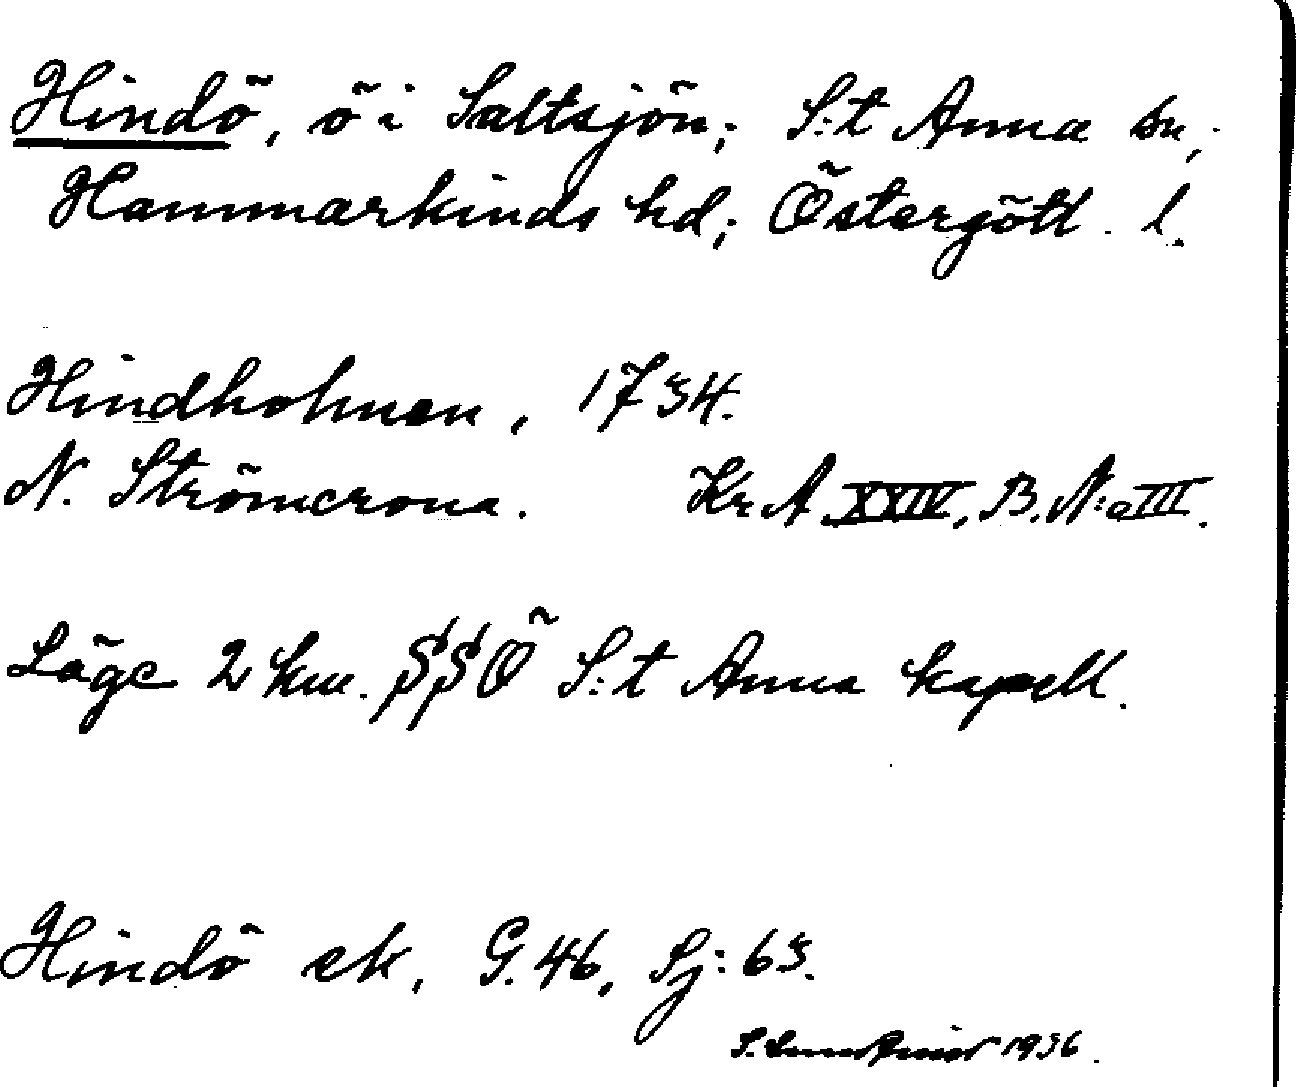 Hindö, ö i Saltsjön; S:t Anna sn,
Hammarkinds hd; Östergötl. l.
Hindholmen, 1734.
N. Strömcrona. Kr.A. XXIV, B. N:o III.
Läge 2 km. SSÖ S:t Anna kapell.
Hindö ek, G. 46, Sj: 63.
1936.